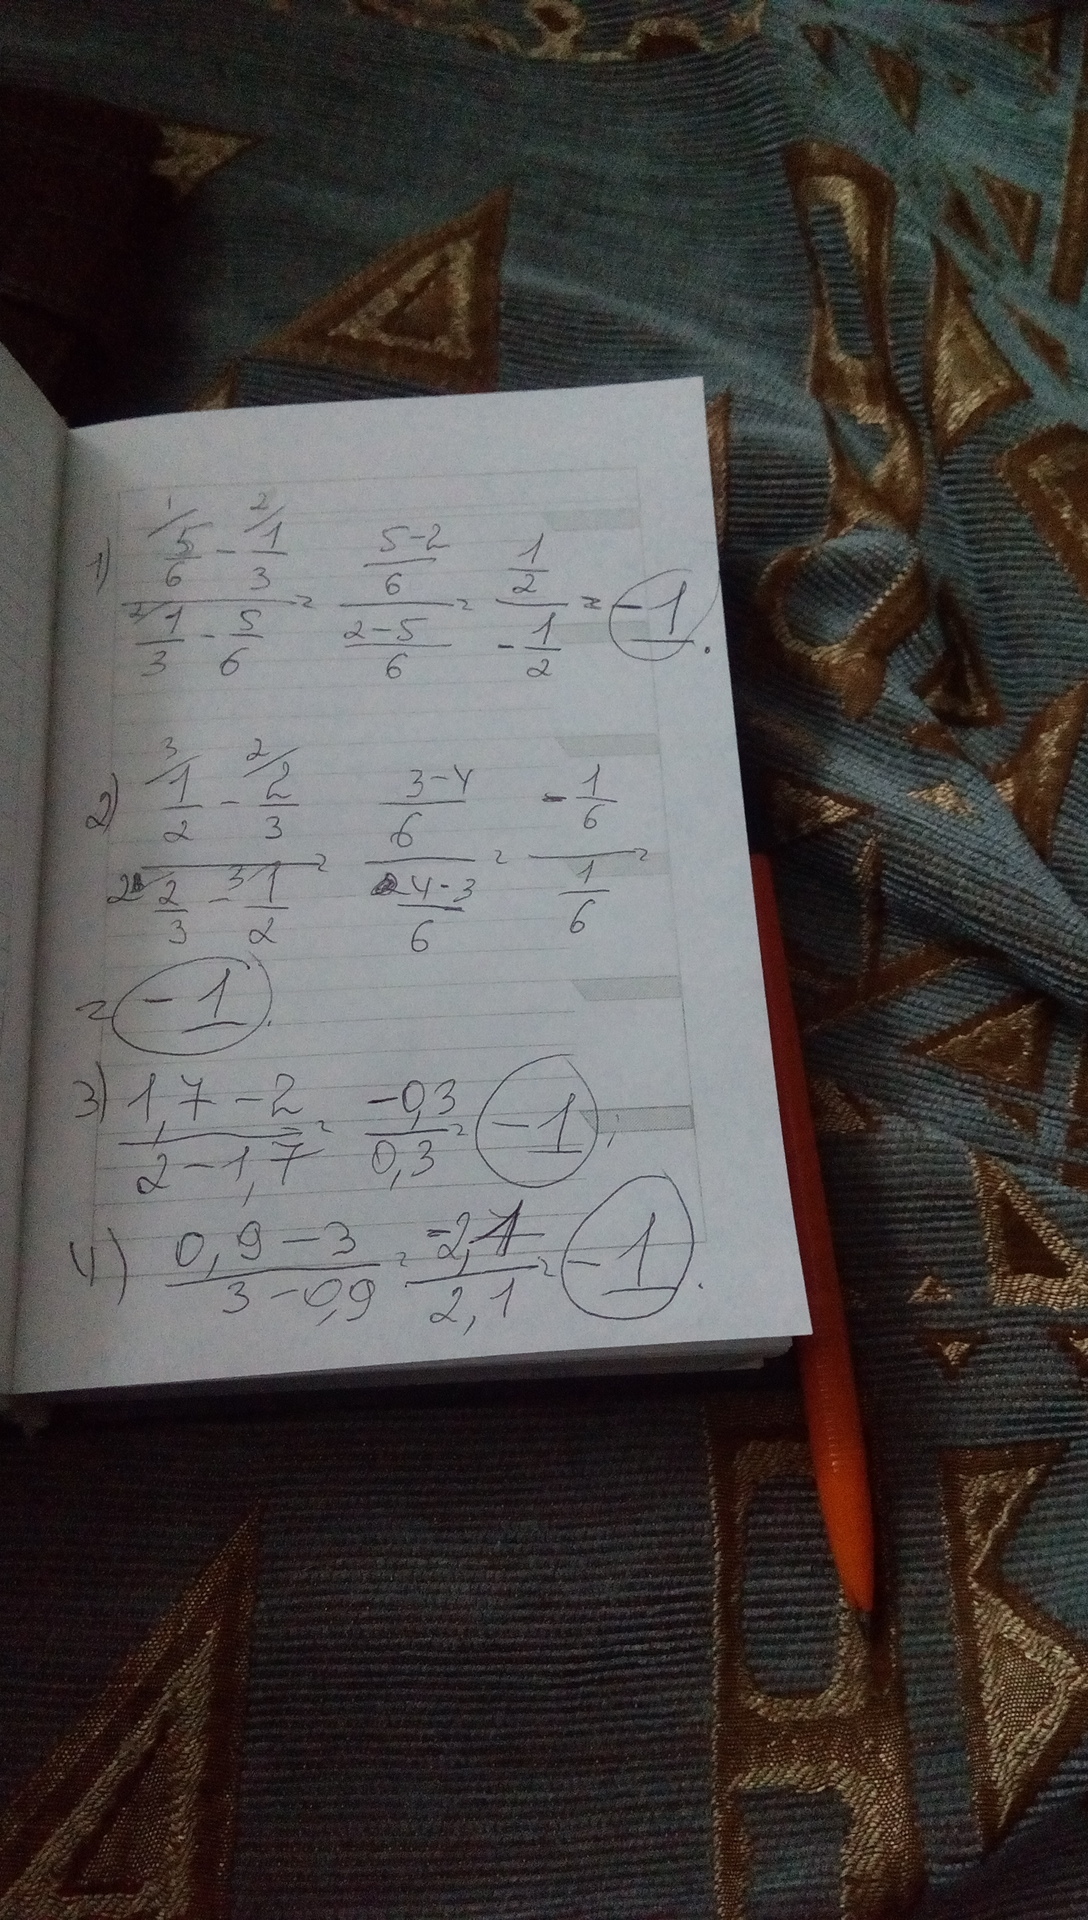 1) (¹/5/6 - ²/1/3) / (²/1/3 - 5/6) = ((5-2)/6) / ((2-5)/6) = (1/2) / (-1/2) = -1.
2) (³/1/2 - ²/2/3) / (²/2/3 - ³/1/2) = ((3-4)/6) / ((4-3)/6) = (-1/6) / (1/6) =
= -1.
3) (1,7-2) / (2-1,7) = -0,3 / 0,3 = -1;
4) (0,9-3) / (3-0,9) = -2,1 / 2,1 = -1.